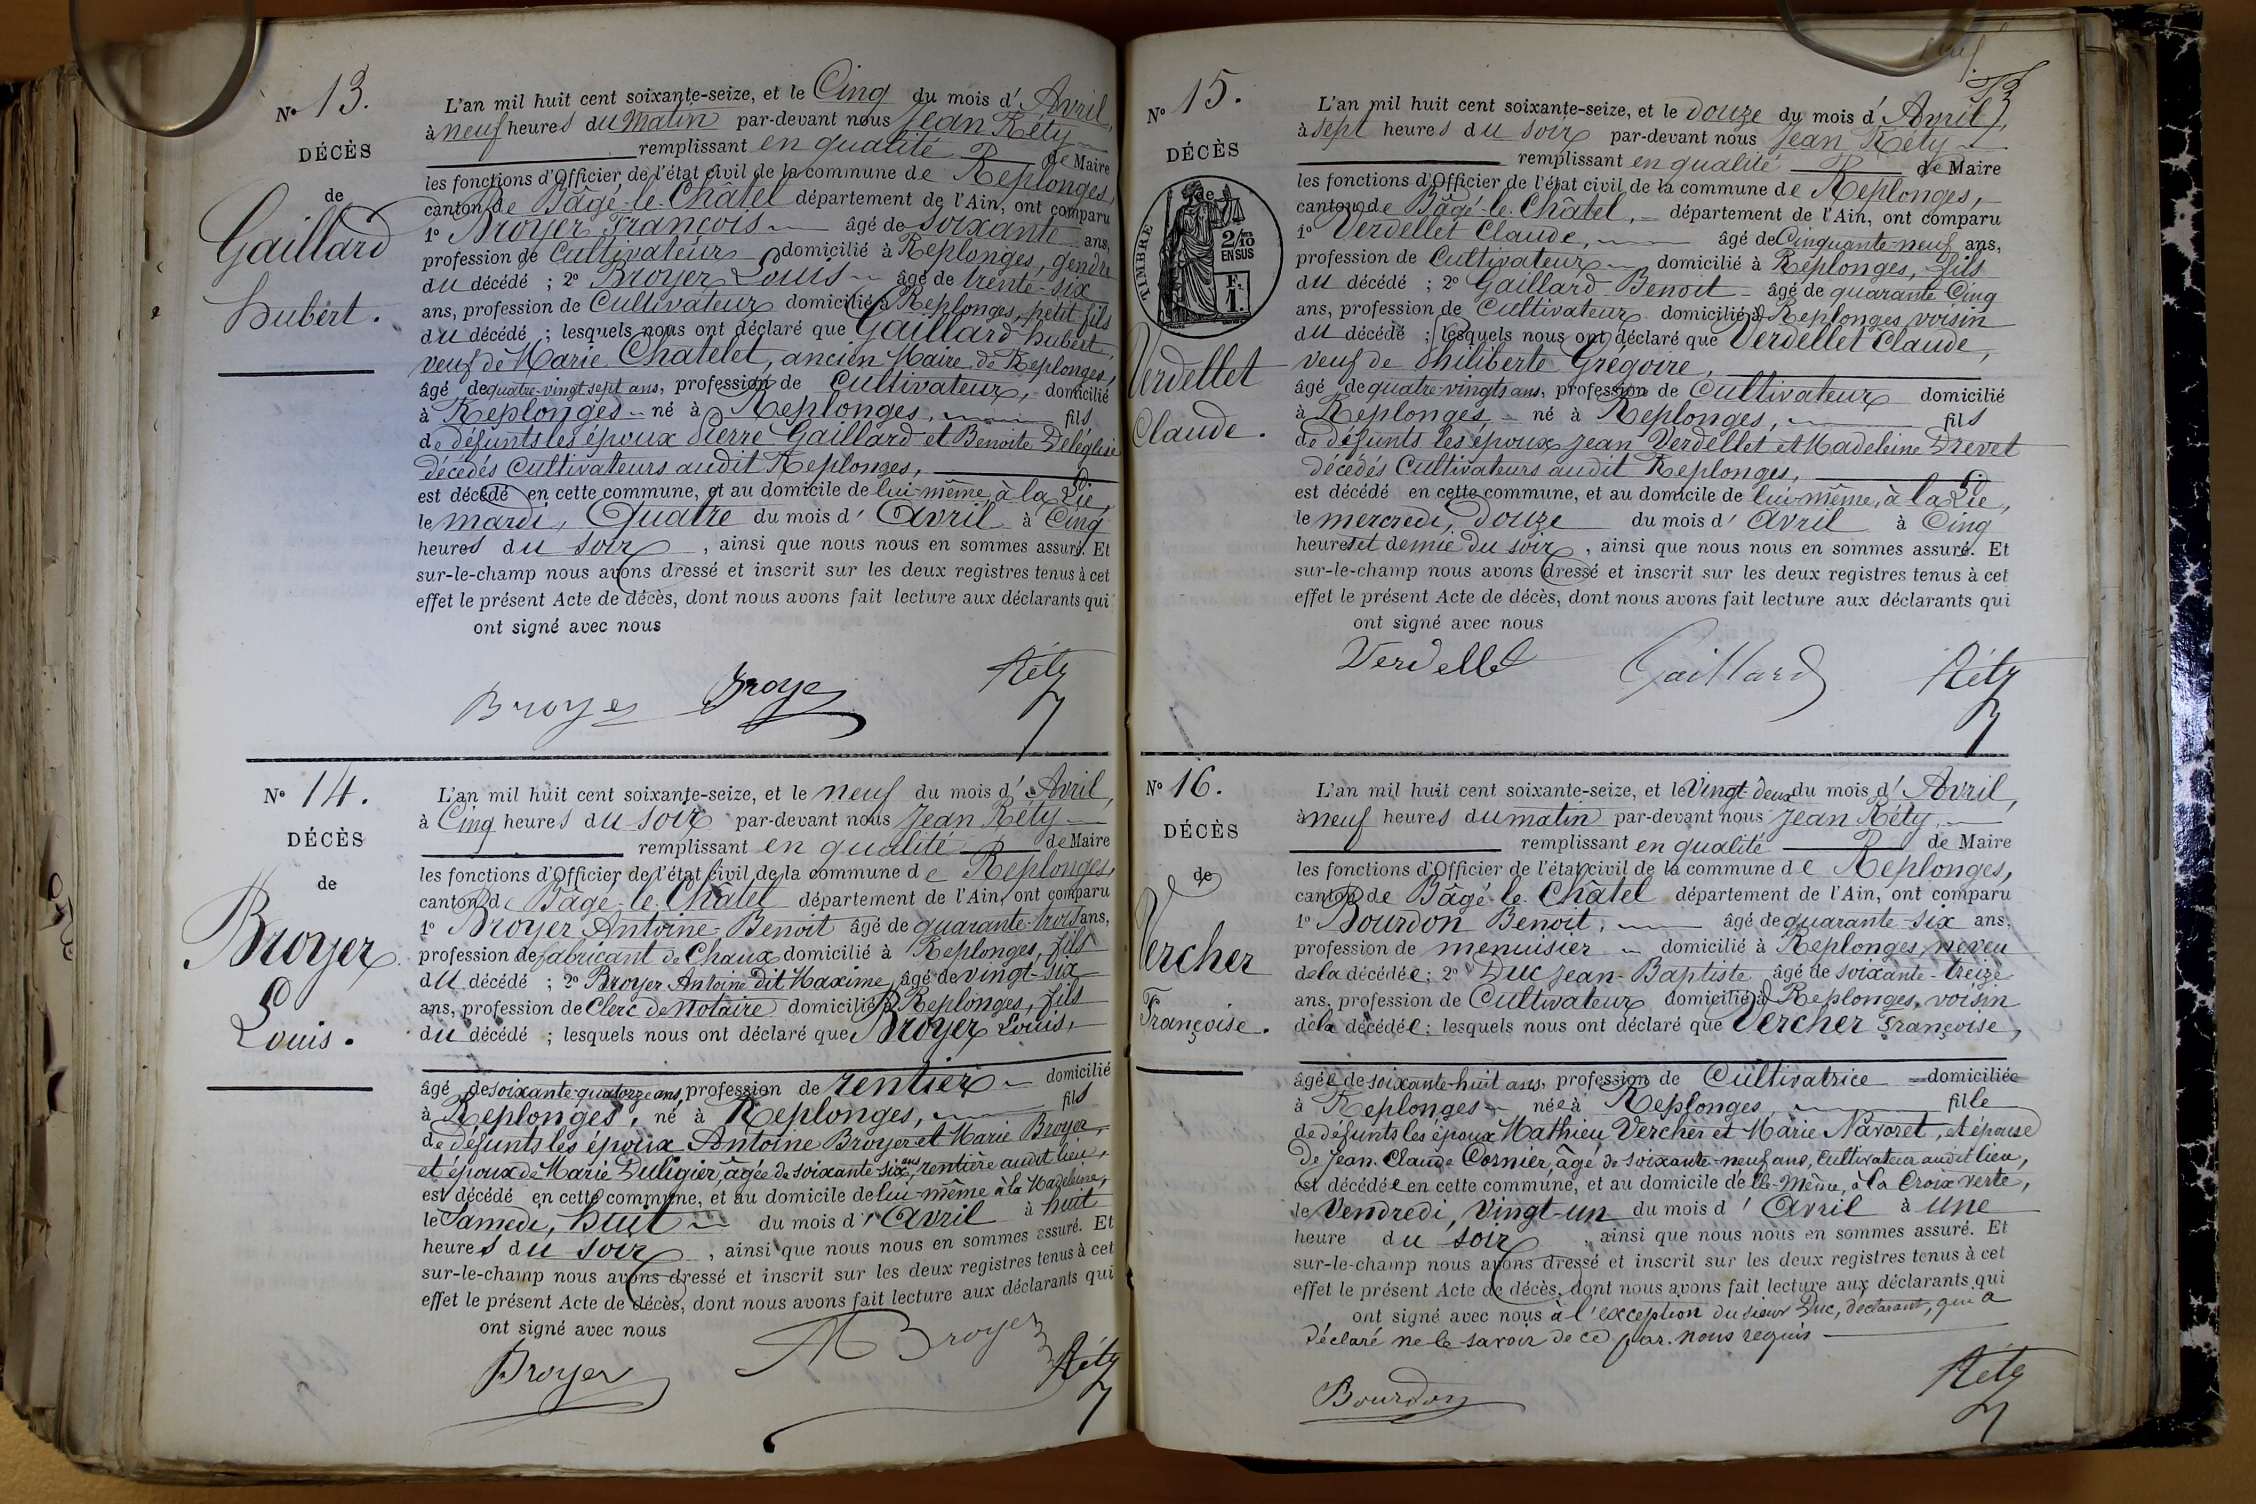 N° 13.
DÉCÈS
de
Gaillard
hubert.
L'an mil huit cent soixante-seize, et le Cinq du mois d'Avril,
à neuf heures du Matin par-devant nous Jean Réty
remplissant en qualité de Maire
les fonctions d'Officier de l'état civil de la commune de Replonges,
canton de Bâgé-le-Châtel département de l'Ain, ont comparu
1° Broyer François âgé de soixante ans,
profession de Cultivateur domicilié à Replonges, gendre
du décédé ; 2° Broyer Louis âgé de trente-six
ans, profession de Cultivateur domicilié à Replonges, petit fils
du décédé ; lesquels nous ont déclaré que Gaillard hubert,
veuf de Marie Chatelet, ancien Maire de Replonges,
âgé de quatre-vingt sept ans, profession de Cultivateur, domicilié
à Replonges né à Replonges, fils
de défunts les époux Pierre Gaillard et Benoite Deléglise
décédés Cultivateurs audit Replonges,
est décédé en cette commune, et au domicile de lui-même, à la Lie,
le mardi, Quatre du mois d'Avril à Cinq
heures du soir, ainsi que nous nous en sommes assuré. Et
sur-le-champ nous avons dressé et inscrit sur les deux registres tenus à cet
effet le présent Acte de décès, dont nous avons fait lecture aux déclarants qui
ont signé avec nous
Broyer Broyer Réty
N° 14.
DÉCÈS
de
Broyer
Louis.
L'an mil huit cent soixante-seize, et le neuf du mois d'Avril,
à Cinq heures du soir par-devant nous Jean Réty
remplissant en qualité de Maire
les fonctions d'Officier de l'état civil de la commune de Replonges,
canton d Bâgé-le-Châtel département de l'Ain, ont comparu
1° Broyer Antoine-Benoit âgé de quarante-trois ans,
profession de fabricant de Chaux domicilié à Replonges, fils
du décédé ; 2° Broyer Antoine dit Maxime, âgé de vingt-six
ans, profession de Clerc de Notaire domicilié à Replonges, fils
du décédé ; lesquels nous ont déclaré que Broyer Louis,
âgé de soixante-quatorze ans, profession de rentier domicilié
à Replonges, né à Replonges, fils
de défunts les époux Antoine Broyer et Marie Broyer,
et époux de Marie Duligier, âgée de soixante-six ans, rentière audit lieu,
est décédé en cette commune, et au domicile de lui-même à la Madeleine,
le Samedi, huit du mois d'Avril à huit
heures du soir, ainsi que nous nous en sommes assuré. Et
sur-le-champ nous avons dressé et inscrit sur les deux registres tenus à cet
effet le présent Acte de décès, dont nous avons fait lecture aux déclarants qui
ont signé avec nous
Broyer A Broyer Réty
N° 15.
DÉCÈS
de
TIMBRE
2/10 EN SUS
F. 1.
Verdellet
Claude.
L'an mil huit cent soixante-seize, et le douze du mois d'Avril,
à sept heures du soir par-devant nous Jean Réty
remplissant en qualité de Maire
les fonctions d'Officier de l'état civil de la commune de Replonges,
canton de Bâgé-le-Châtel, département de l'Ain, ont comparu
1° Verdellet Claude, âgé de Cinquante-neuf ans,
profession de Cultivateur domicilié à Replonges, fils
du décédé ; 2° Gaillard Benoit âgé de quarante Cinq
ans, profession de Cultivateur domicilié à Replonges voisin
du décédé ; lesquels nous ont déclaré que Verdellet Claude,
veuf de Philiberte Grégoire,
âgé de quatre-vingts ans, profession de Cultivateur domicilié
à Replonges né à Replonges, fils
de défunts les époux Jean Verdellet et Madeleine Drevet
décédés Cultivateurs audit Replonges,
est décédé en cette commune, et au domicile de lui-même, à la Lie,
le mercredi, douze du mois d'Avril à Cinq
heures et demie du soir, ainsi que nous nous en sommes assuré. Et
sur-le-champ nous avons dressé et inscrit sur les deux registres tenus à cet
effet le présent Acte de décès, dont nous avons fait lecture aux déclarants qui
ont signé avec nous
Verdellet Gaillard Réty
N° 16.
DÉCÈS
de
Vercher
Françoise.
L'an mil huit cent soixante-seize, et le Vingt deux du mois d'Avril,
à neuf heures du matin par-devant nous Jean Réty,
remplissant en qualité de Maire
les fonctions d'Officier de l'état civil de la commune de Replonges,
canton de Bâgé-le-Châtel département de l'Ain, ont comparu
1° Bourdon Benoit, âgé de quarante-six ans,
profession de menuisier domicilié à Replonges neveu
de la décédée ; 2° Duc Jean-Baptiste âgé de soixante-treize
ans, profession de Cultivateur domicilié à Replonges, voisin
de la décédée ; lesquels nous ont déclaré que Vercher Françoise,
âgée de soixante-huit ans, profession de Cultivatrice domiciliée
à Replonges née à Replonges fille
de défunts les époux Mathieu Vercher et Marie Navoret, et épouse
de Jean-Claude Cornier, âgé de soixante-neuf ans, cultivateur audit lieu,
est décédée en cette commune, et au domicile d'elle-même, à la Croix verte,
le Vendredi, vingt-un du mois d'Avril à une
heure du soir, ainsi que nous nous en sommes assuré. Et
sur-le-champ nous avons dressé et inscrit sur les deux registres tenus à cet
effet le présent Acte de décès, dont nous avons fait lecture aux déclarants qui
ont signé avec nous à l'exception du sieur Duc, déclarant, qui a
déclaré ne le savoir de ce par nous requis
Bourdon Réty